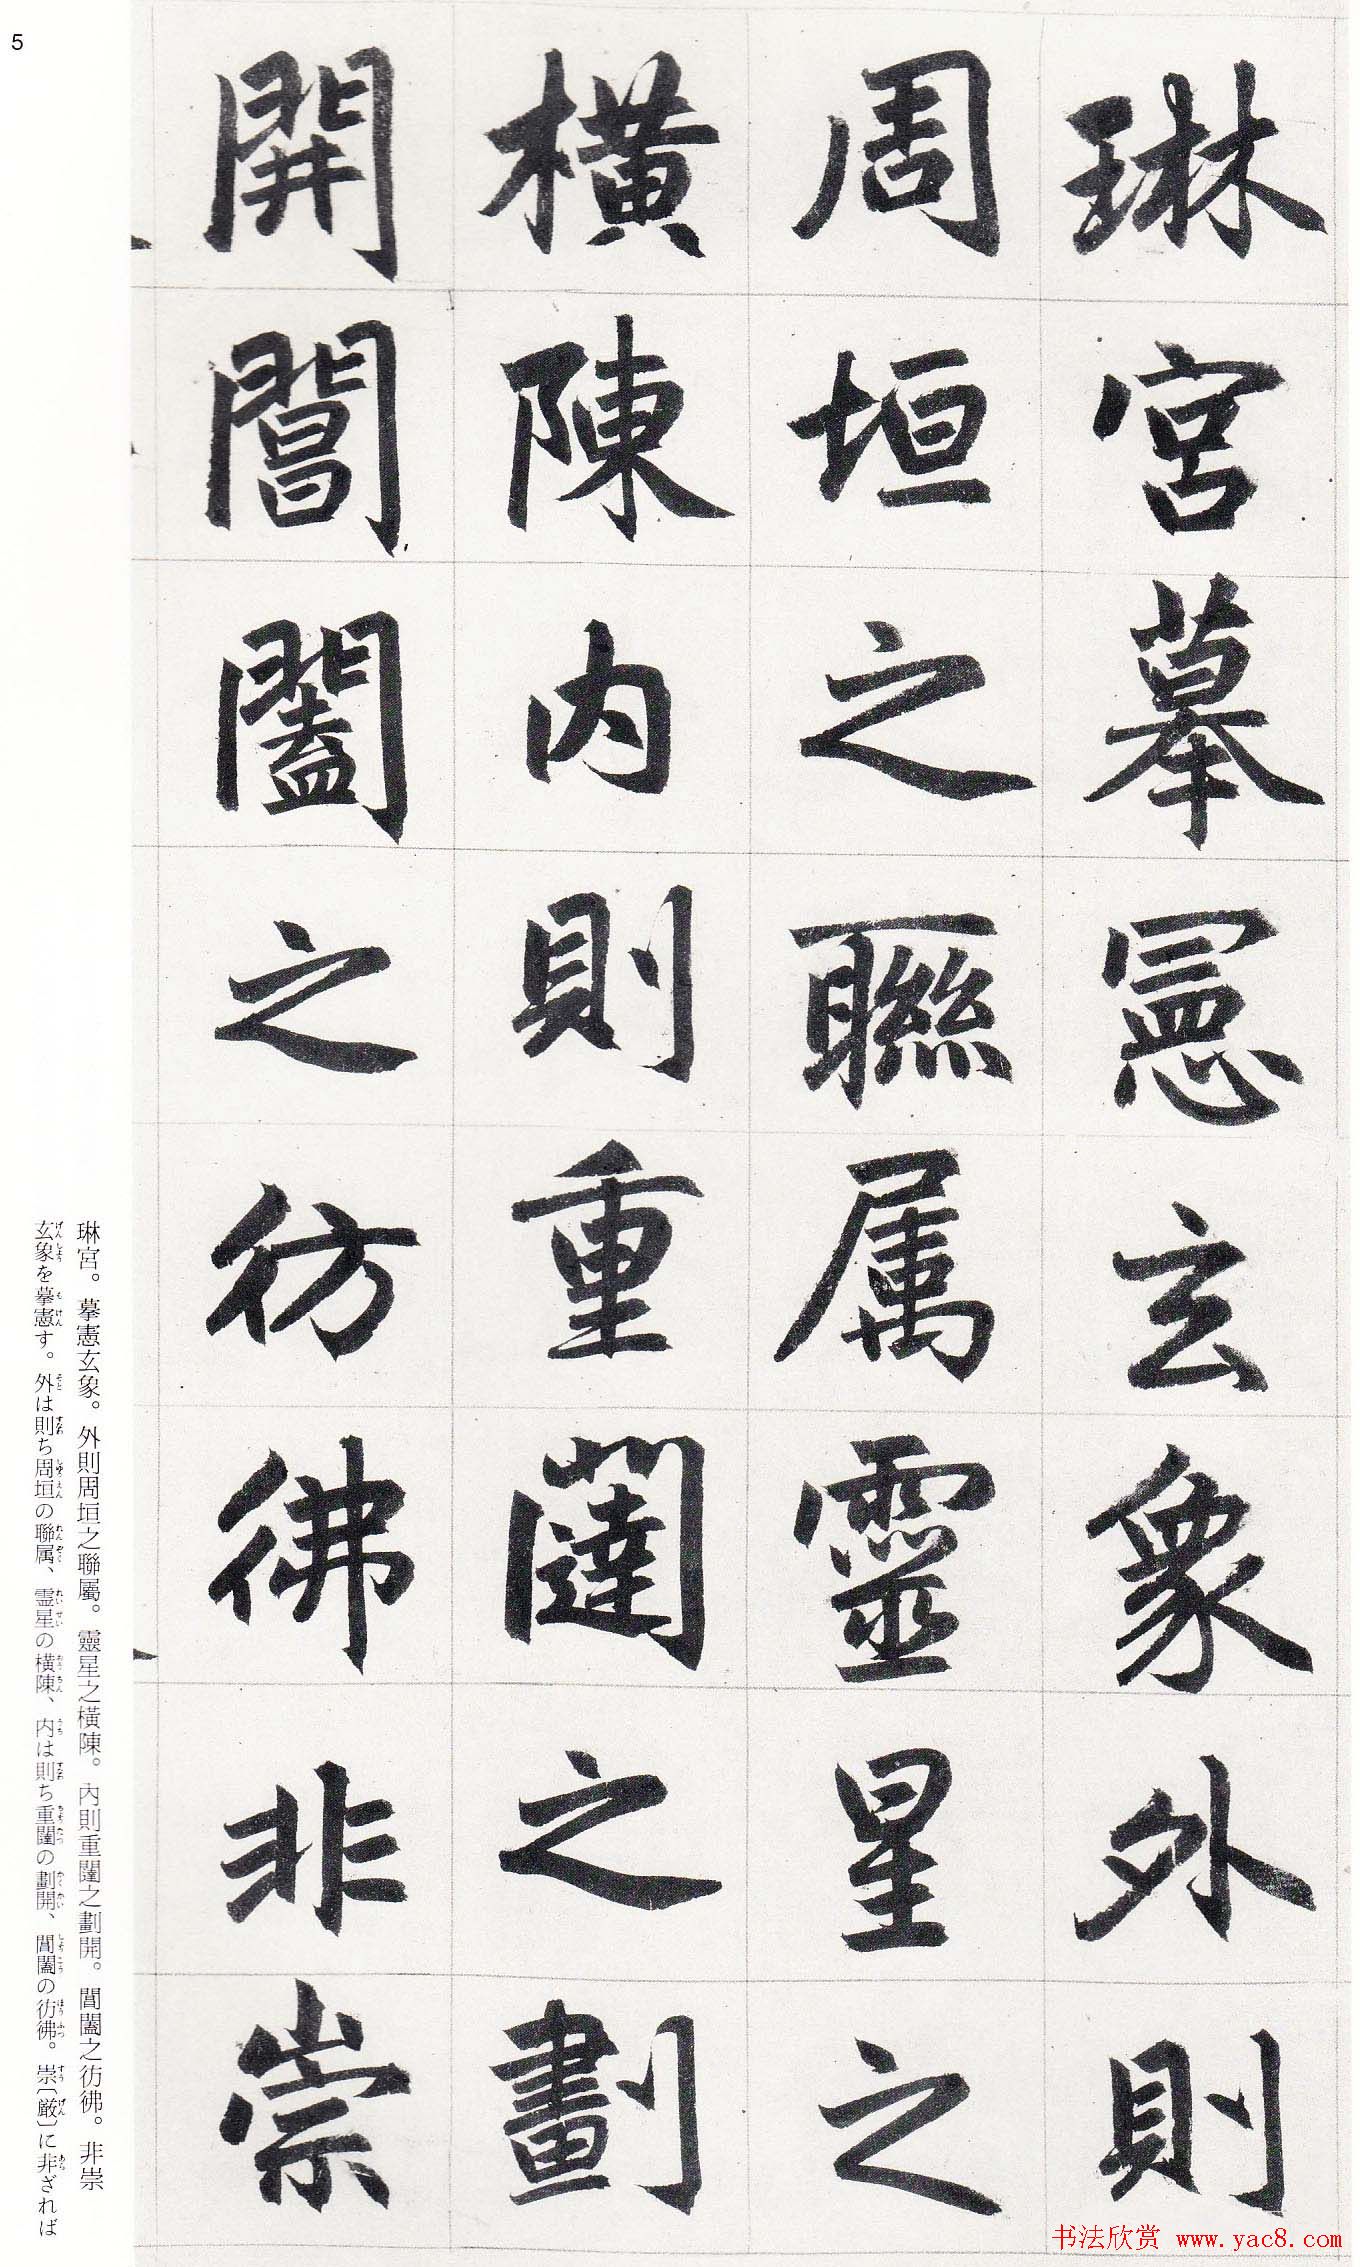 5
琳宮摹憲玄象外則
周垣之聯属靈星之
橫陳内則重闥之劃
開閶闔之彷彿非崇
琳宮。摹憲玄象。外則周垣之聯屬。靈星之橫陳。內則重闥之劃開。閶闔之彷彿。非崇
玄象を摹憲す。外は則ち周垣の聯属、霊星の橫陳、内は則ち重闥の劃開、閶闔の彷彿。崇〔厳〕に非ざれば
书法欣赏 www.yac8.com